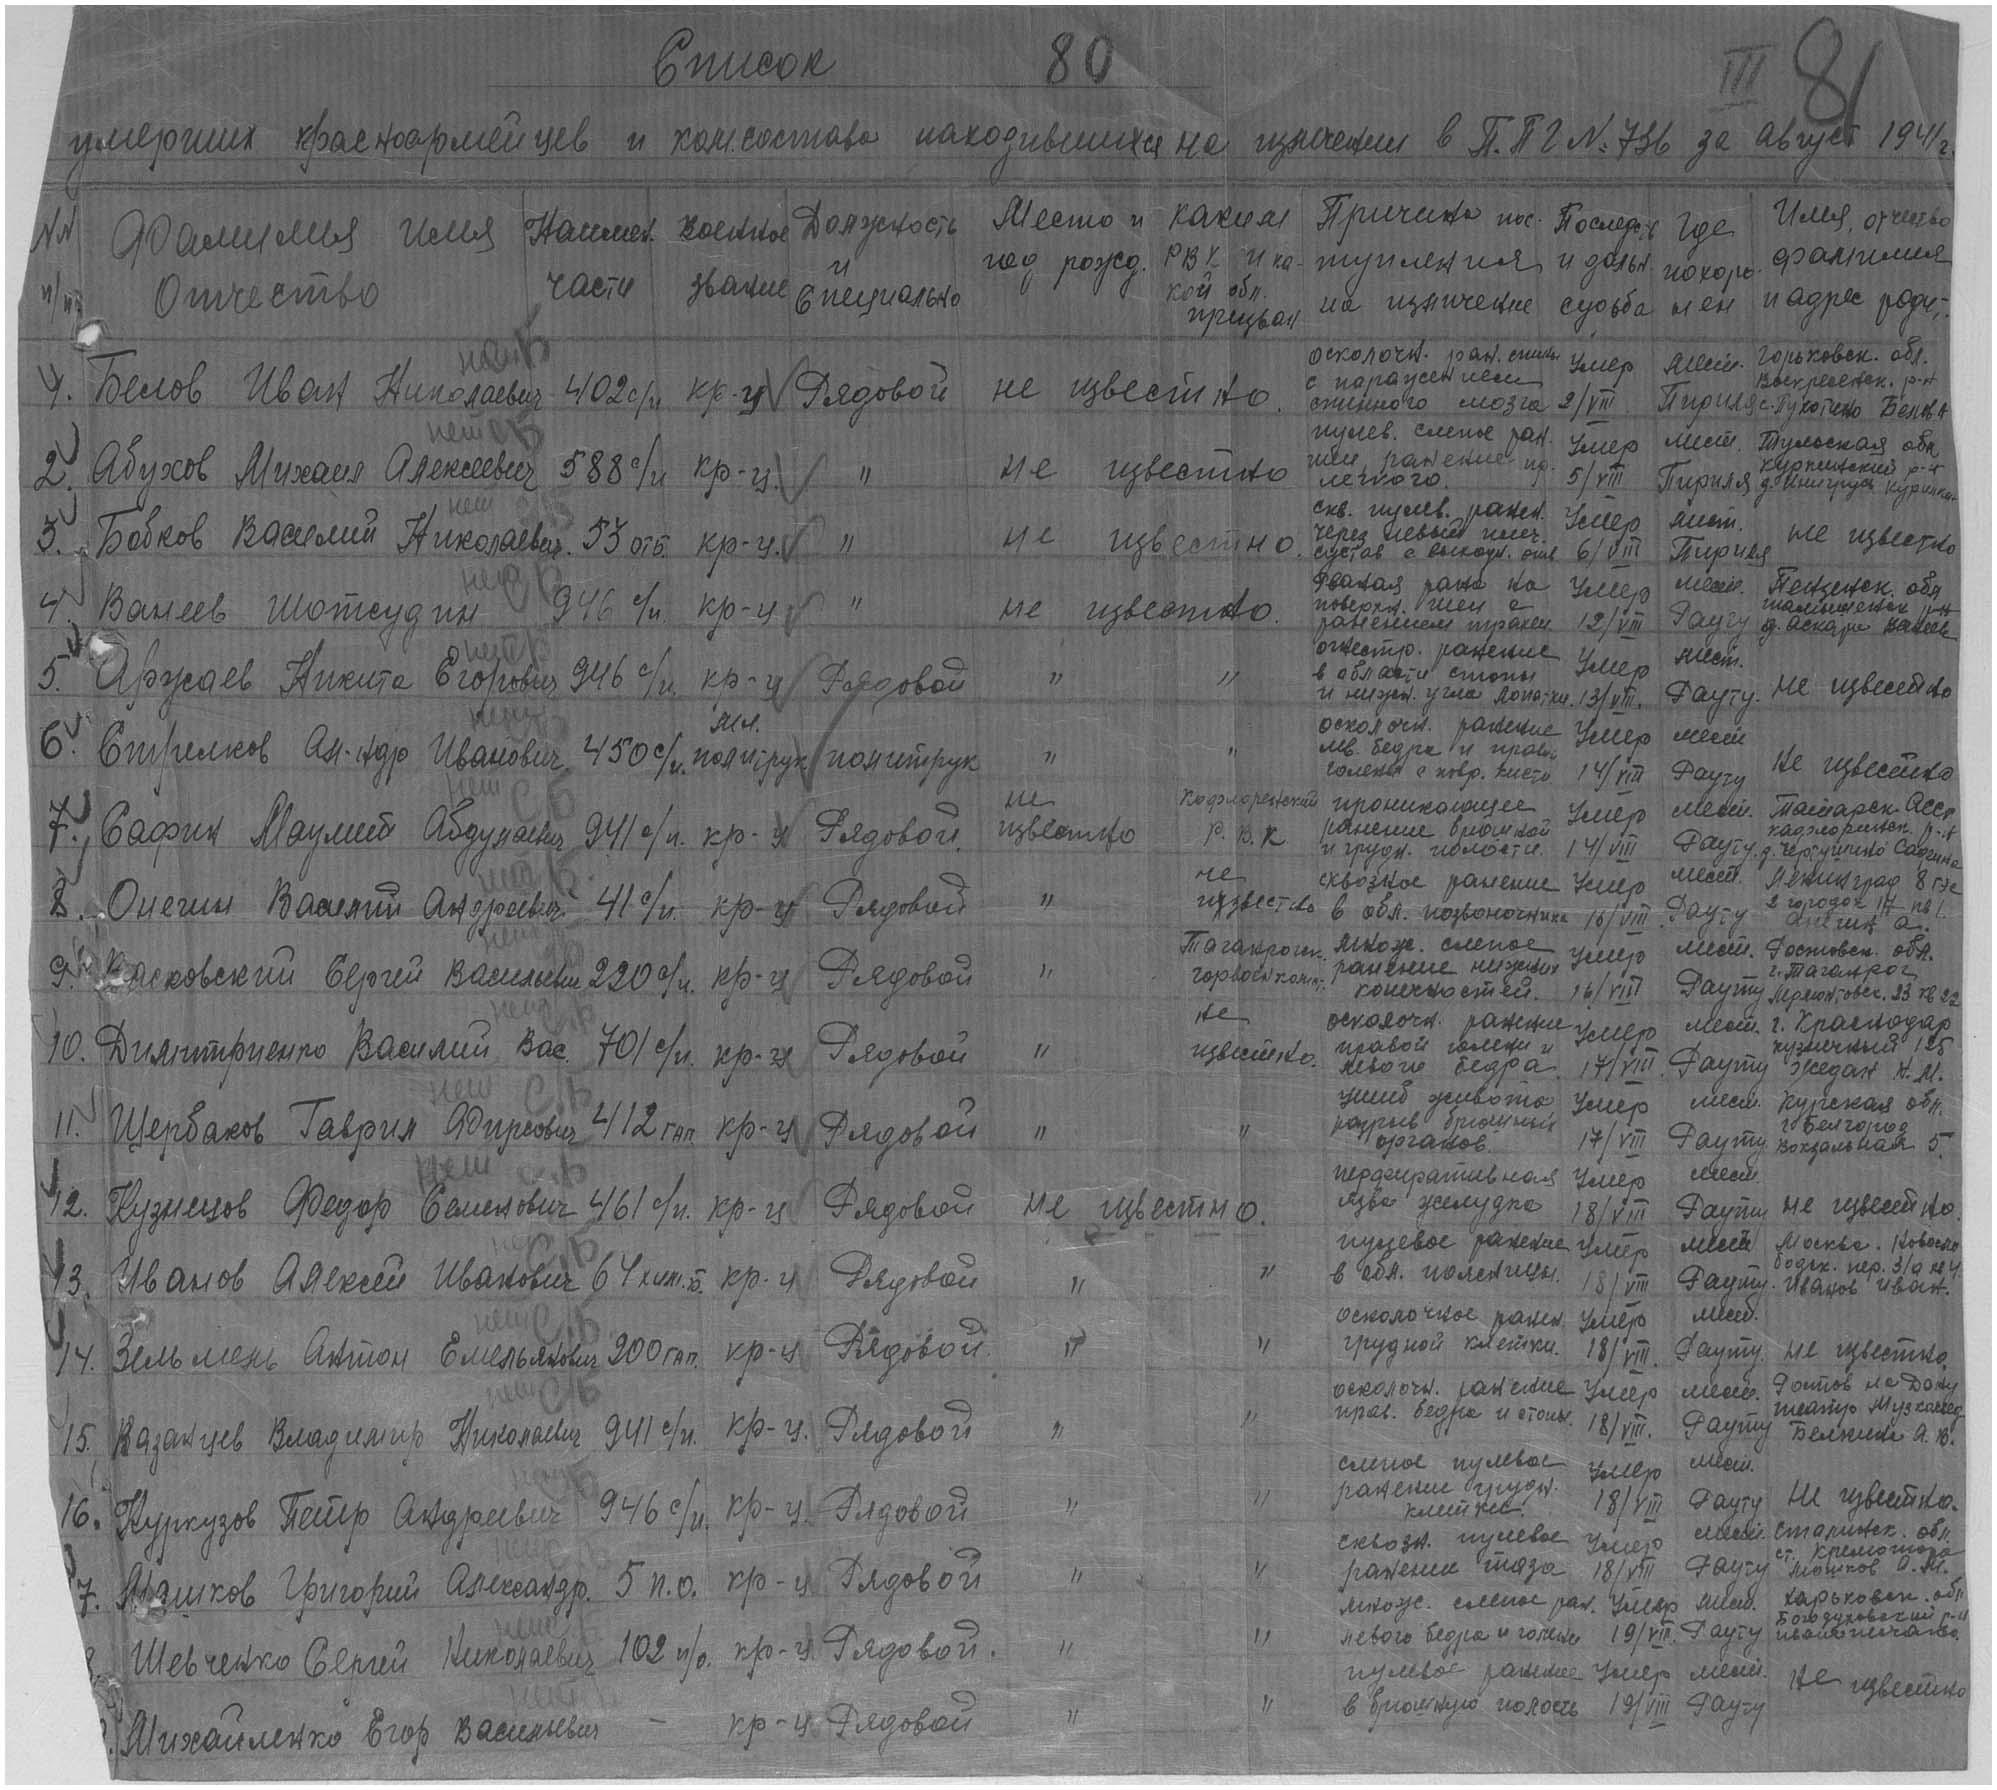 Список 80
III 81
умерших красноармейцев и комсостава находившихся на излечении в П.П.Г N: 736 за август 1941 г.
NN п/п
Фамилия имя Отчество
Наимен. части
Военное звание
Должность и специальн
Место и год рожд.
Каким РВК и какой обл. призван
Причина поступления на излечение
Последст и дальн. судьба
Где похоронен
Имя, отчество фамилия и адрес роди.
1. Белов Иван Николаевич 402 с/п кр-ц Рядовой не известно. осколочн. ран. спины с паражением спинного мозга Умер 2/VIII мест. Пириля Горьковск. обл. Воскресенск. р-н Белов
2. Абухов Михаил Алексеевич 588 с/п кр-ц. " не известно пулев. слепое ран. шеи, ранение пр. легкого. Умер 5/VIII мест. Пириля Тульская обл
3. Бобков Василий Николаевич. 53 отб. кр-ц. " не известно. скв. пулев. ранен. через левый плеч. сустав с выходн. Умер 6/VIII мест. Пириля не известно
4. Ванеев 946 с/п. кр-ц " не известно. рваная рана на поверхн. шеи с ранением трахеи Умер 12/VIII мест. Рауту Пензенск. обл
5. Аржаев Никита Егорович 946 с/п. кр-ц Рядовой " " огнестр. ранение в области стопы и нижн. угла лопатки. Умер 13/VIII. мест. Рауту. не известно
6. Стрелков Ал-ндр Иванович 450 с/п. мл. политрук политрук " " осколочн. ранение лев. бедра и прав. голени с повр. кисти Умер 14/VIII мест Рауту не известно
7. Сафин 941 с/п. кр-ц Рядовой. не известно Р.В.К. проникающее ранение брюшной и грудн. полости. Умер 14/VIII мест. Рауту. Татарск. АССР
8. Онегин Василий Андреевич 41 с/п. кр-ц Рядовой " не известно сквозное ранение в обл. позвоночника Умер 16/VIII. мест. Рауту Ленинград 2 городок 17 кв 1.
9. Сергей Васильевич 220 с/п. кр-ц Рядовой " Таганрогск. множ. слепое ранение нижних конечностей. Умер 16/VIII мест. Рауту Ростовск. обл. г. Таганрог Лермонтовск. 23 кв 22
10. Димитриенко Василий Вас. 701 с/п. кр-ц Рядовой " не известно. осколочн. ранение правой голени и левого бедра Умер 17/VIII. мест. Рауту г. Краснодар Кузнечный 125 Жедан Н.М.
11. Щербаков Гаврил Фирсович 412 гап кр-ц Рядовой " " ушиб живота разрыв брюшных органов. Умер 17/VIII мест. Рауту Курская обл. г. Белгород Вокзальная 5.
12. Кузнецов Федор Семенович 461 с/п. кр-ц Рядовой не известно. перфиративная язва желудка Умер 18/VIII мест Рауту не известно.
13. Иванов Алексей Иванович 64 хим.б. кр-ц Рядовой " " пулевое ранение в обл. поясницы. Умер 18/VIII мест Рауту. Москва. Иванов Иван.
14. Зельмень Антон Емельянович 200 гап. кр-ц Рядовой. " " осколочное ранен. грудной клетки. Умер 18/VIII. мест. Рауту. не известно.
15. Казанцев Владимир Николаевич 941 с/п. кр-ц. Рядовой " " осколочн. ранение прав. бедра и стопы. Умер 18/VIII. мест. Рауту Ростов на Дону театр Музкомед. Белкина А.В.
16. Куркузов Петр Андреевич 946 с/п. кр-ц Рядовой " " слепое пулевое ранение грудн. клетки. Умер 18/VIII мест. Рауту Не известно.
7. Машков Григорий Александр. 5 п.о. кр-ц Рядовой " " сквозн. пулевое ранение таза Умер 18/VIII мест. Рауту Сталинск. обл. Машков А.М.
Шевченко Сергей Николаевич 102 п/о. кр-ц Рядовой. " " множ. слепое ран. левого бедра и голени Умер 19/VIII. мест. Рауту Харьковск. обл Богодуховский р-н
Михайленко Егор Васильевич – кр-ц Рядовой " " пулевое ранение в брюшную полость Умер 19/VIII мест. Рауту не известно